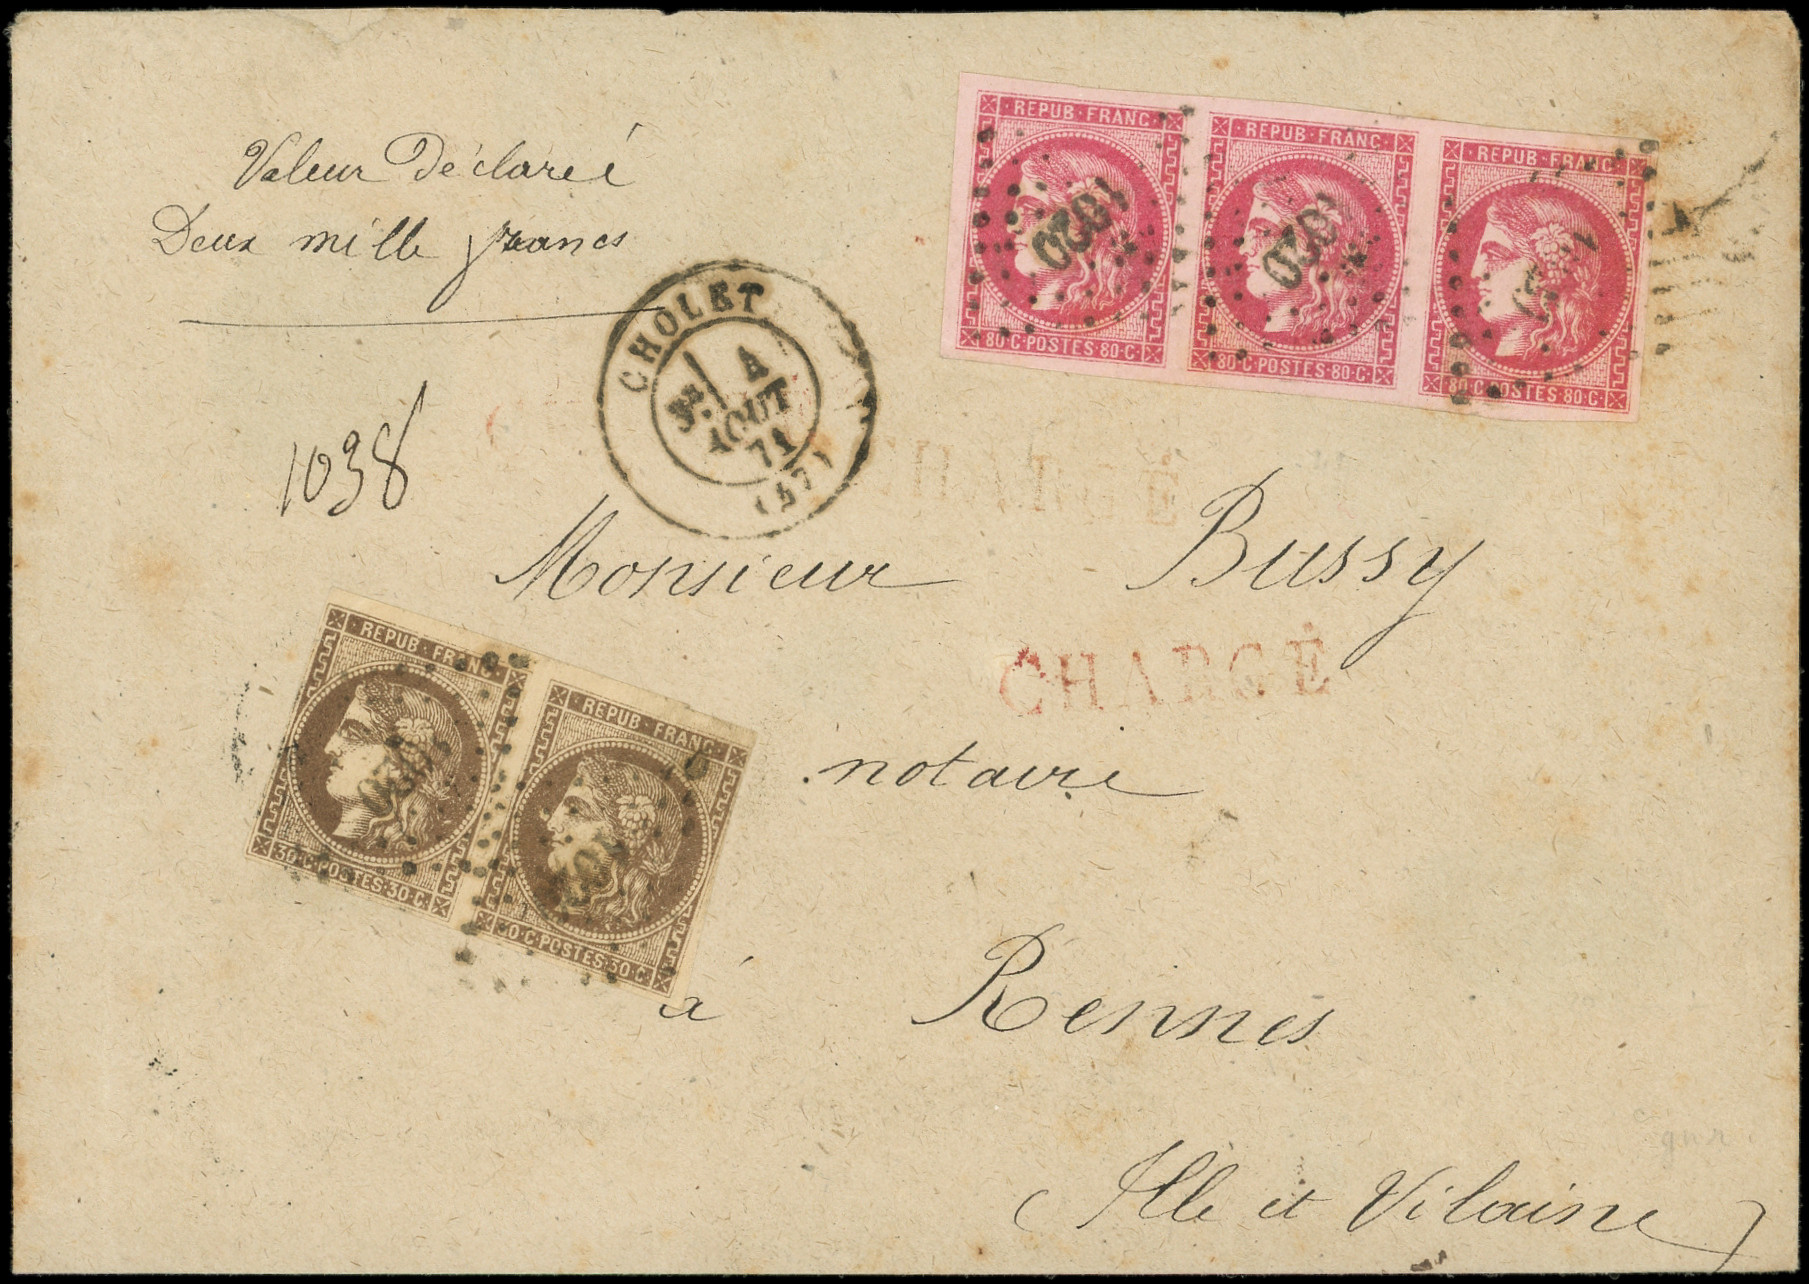 Valeur Déclareé
Deux mille francs
REPUB·FRANC·
80·C·POSTES·80·C·
1020
REPUB·FRANC·
80·C·POSTES·80·C·
1020
REPUB·FRANC·
80·C·POSTES·80·C·
CHOLET
3E 4
AOUT
71
(47)
CHARGÉ
1038
Monsieur Bussy
CHARGÉ
REPUB·FRANC·
30·C·POSTES·30·C·
REPUB·FRANC·
30·C·POSTES·30·C·
notaire
à Rennes
(Ille et Vilaine)